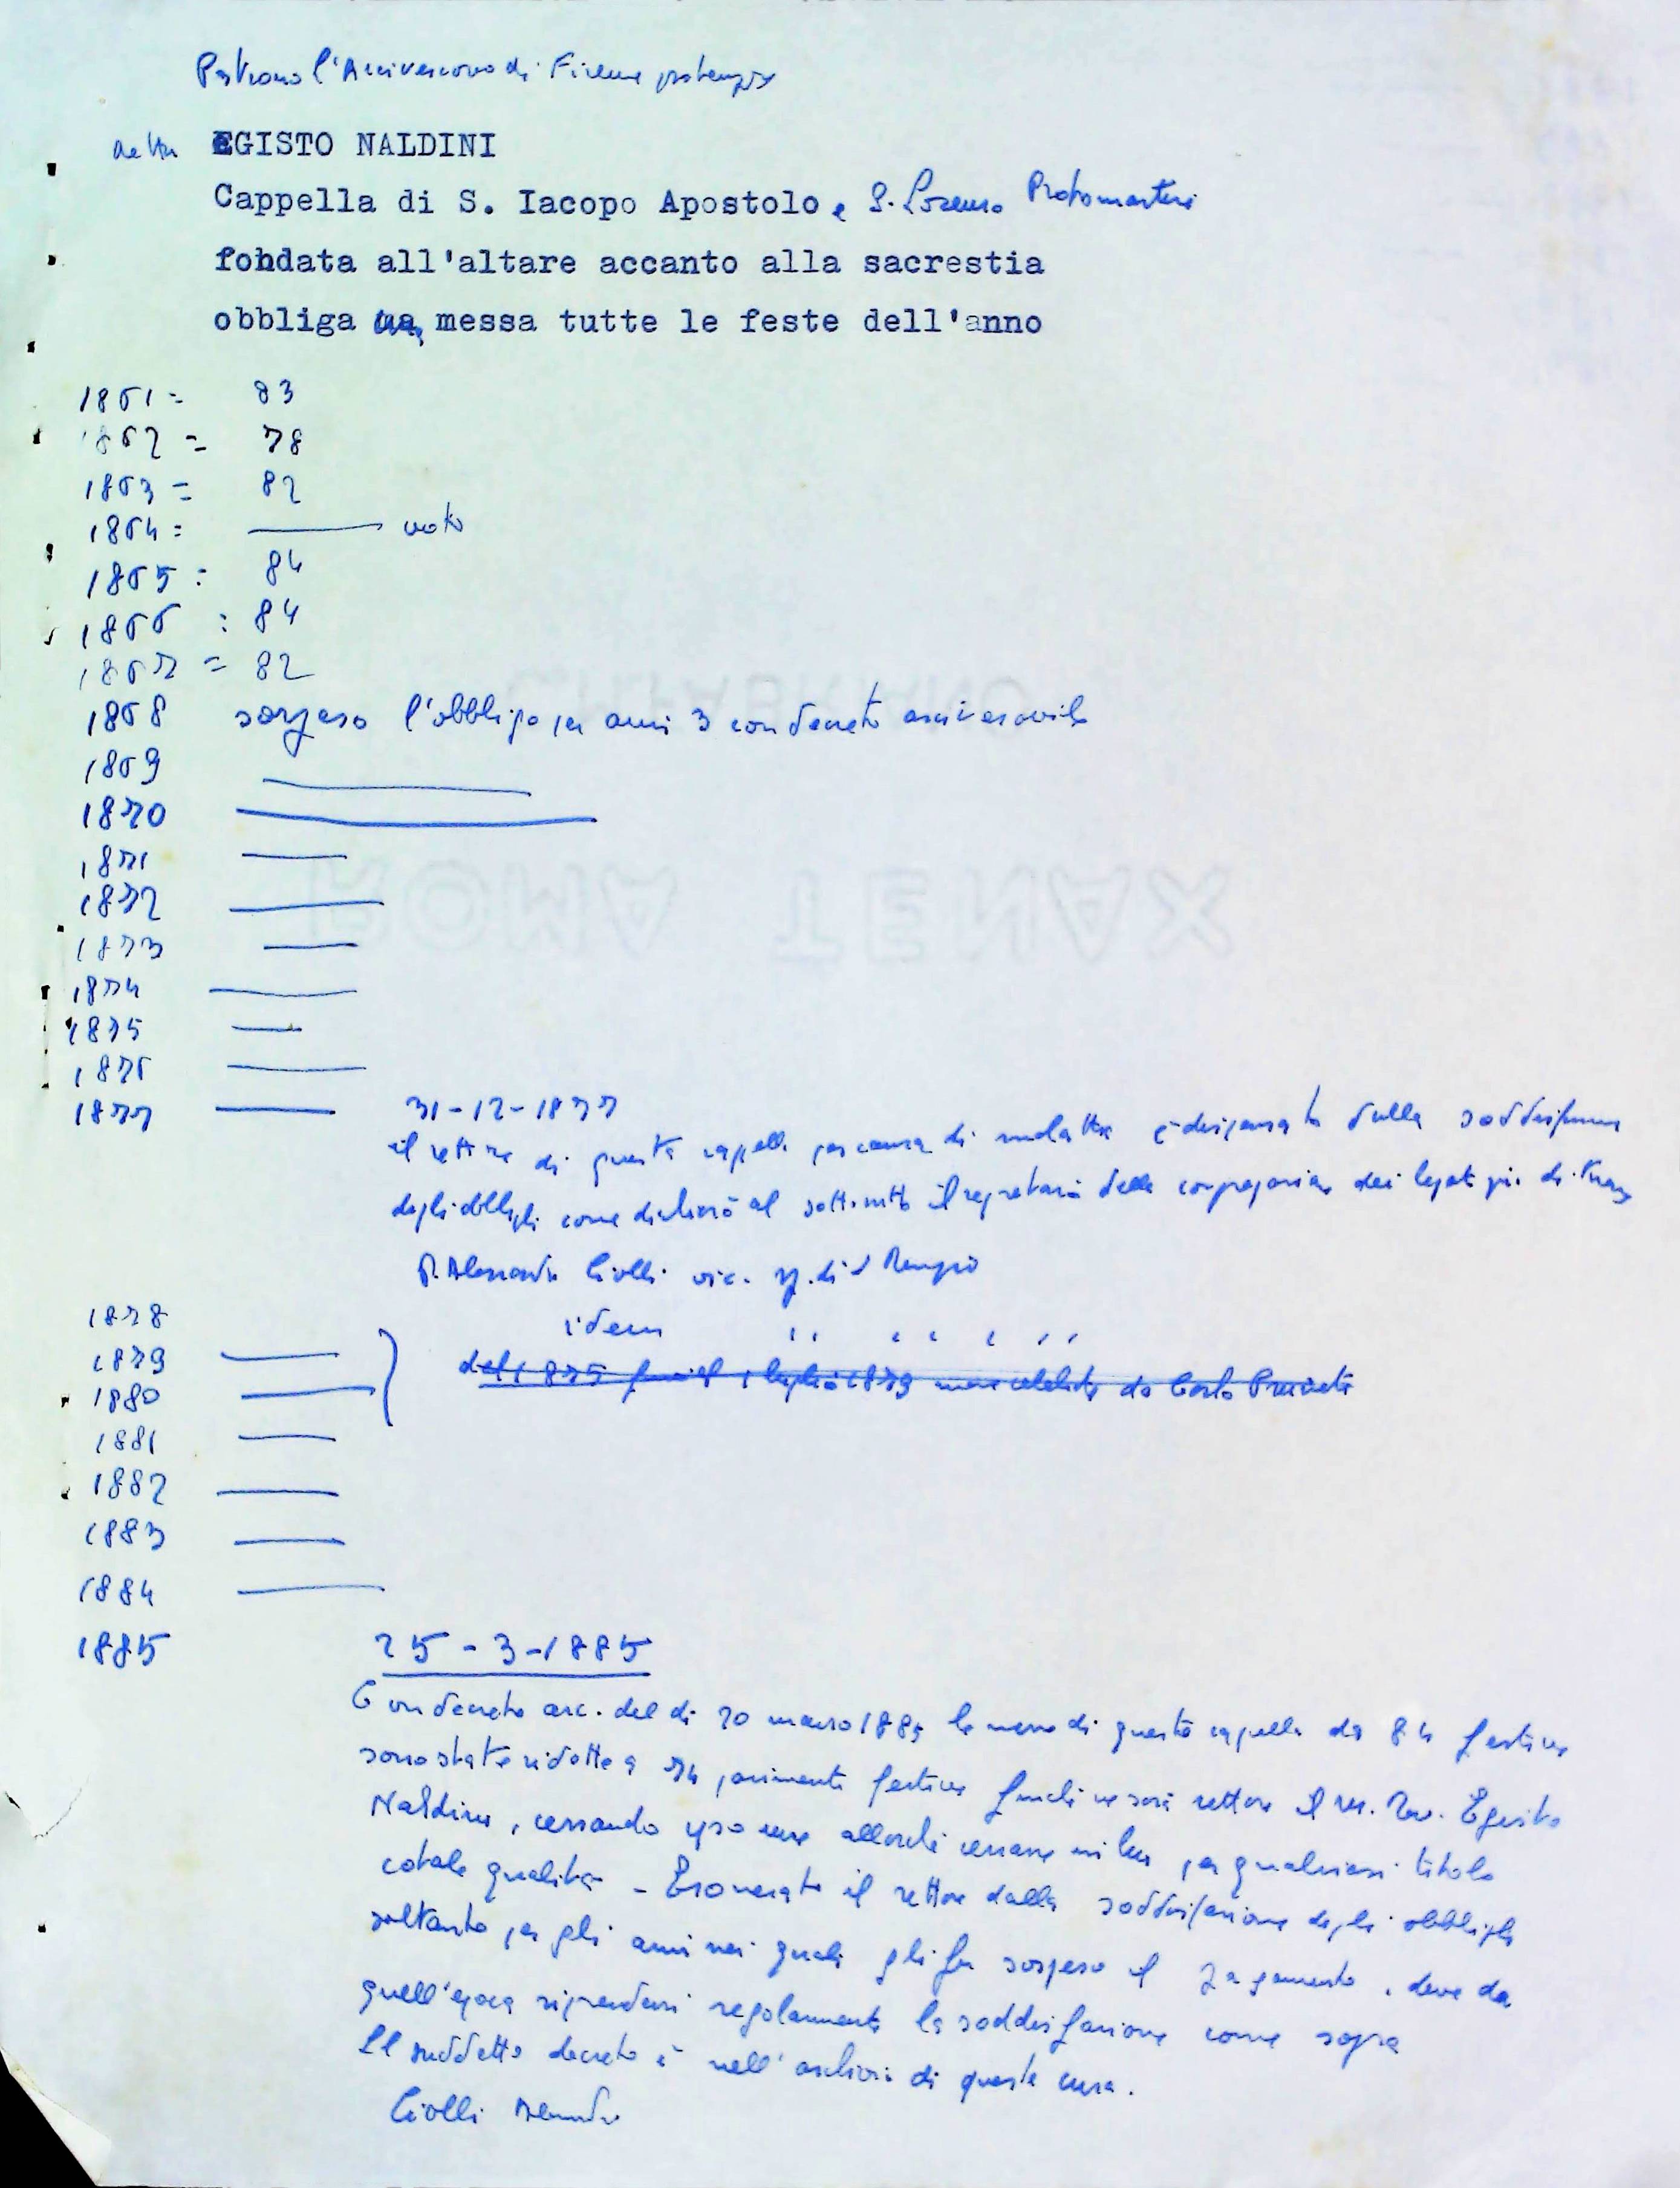 Patrono l'Arcivescovo di Firenze pro tempore
detta EGISTO NALDINI
Cappella di S. Iacopo Apostolo e S. Lorenzo Protomartire
fondata all'altare accanto alla sacrestia
obbliga una messa tutte le feste dell'anno
1861 = 83
1862 = 78
1863 = 82
1864 = ——— vuoto
1865 : 84
1866 : 84
1867 = 82
1868 sospeso l'obbligo per anni 3 con decreto arcivescovile
1869 ———
1870 ———
1871 ———
1872 ———
1873 ———
1874 ———
1875 ———
1876 ———
1877 ——— 31-12-1877
il rettore di questa cappella per causa di malattia è dispensato dalla soddisfazione
degli obblighi come dichiarò al sottoscritto il segretario della congregazione dei legati pii di Firenze
P. Alessandro Ciolli vic. sp. di S Remigio
1878 idem ,, ,, , ,,
1879 ———
del 1875 fino al 1 luglio 1879 messe celebrate da Carlo
1880 ———
1881 ———
1882 ———
1883 ———
1884 ———
1885 25-3-1885
Con decreto arc. del dì 20 marzo 1885 le messe di questa cappella da 84 festive
sono state ridotte a 74 parimenti festive finché ne sarà rettore il M. Rev. Egisto
Naldini, cessando ipso iure allorché cessasse in lui per qualsiasi titolo
cotale qualità - Esonerato il rettore dalla soddisfazione degli obblighi
soltanto per gli anni nei quali gli fu sospeso il pagamento, deve da
quell'epoca riprendersi regolarmente la soddisfazione come sopra
Il suddetto decreto è nell'archivio di questa cura.
Ciolli Alessandro
C.M.FABRIANO
ROMA TENAX